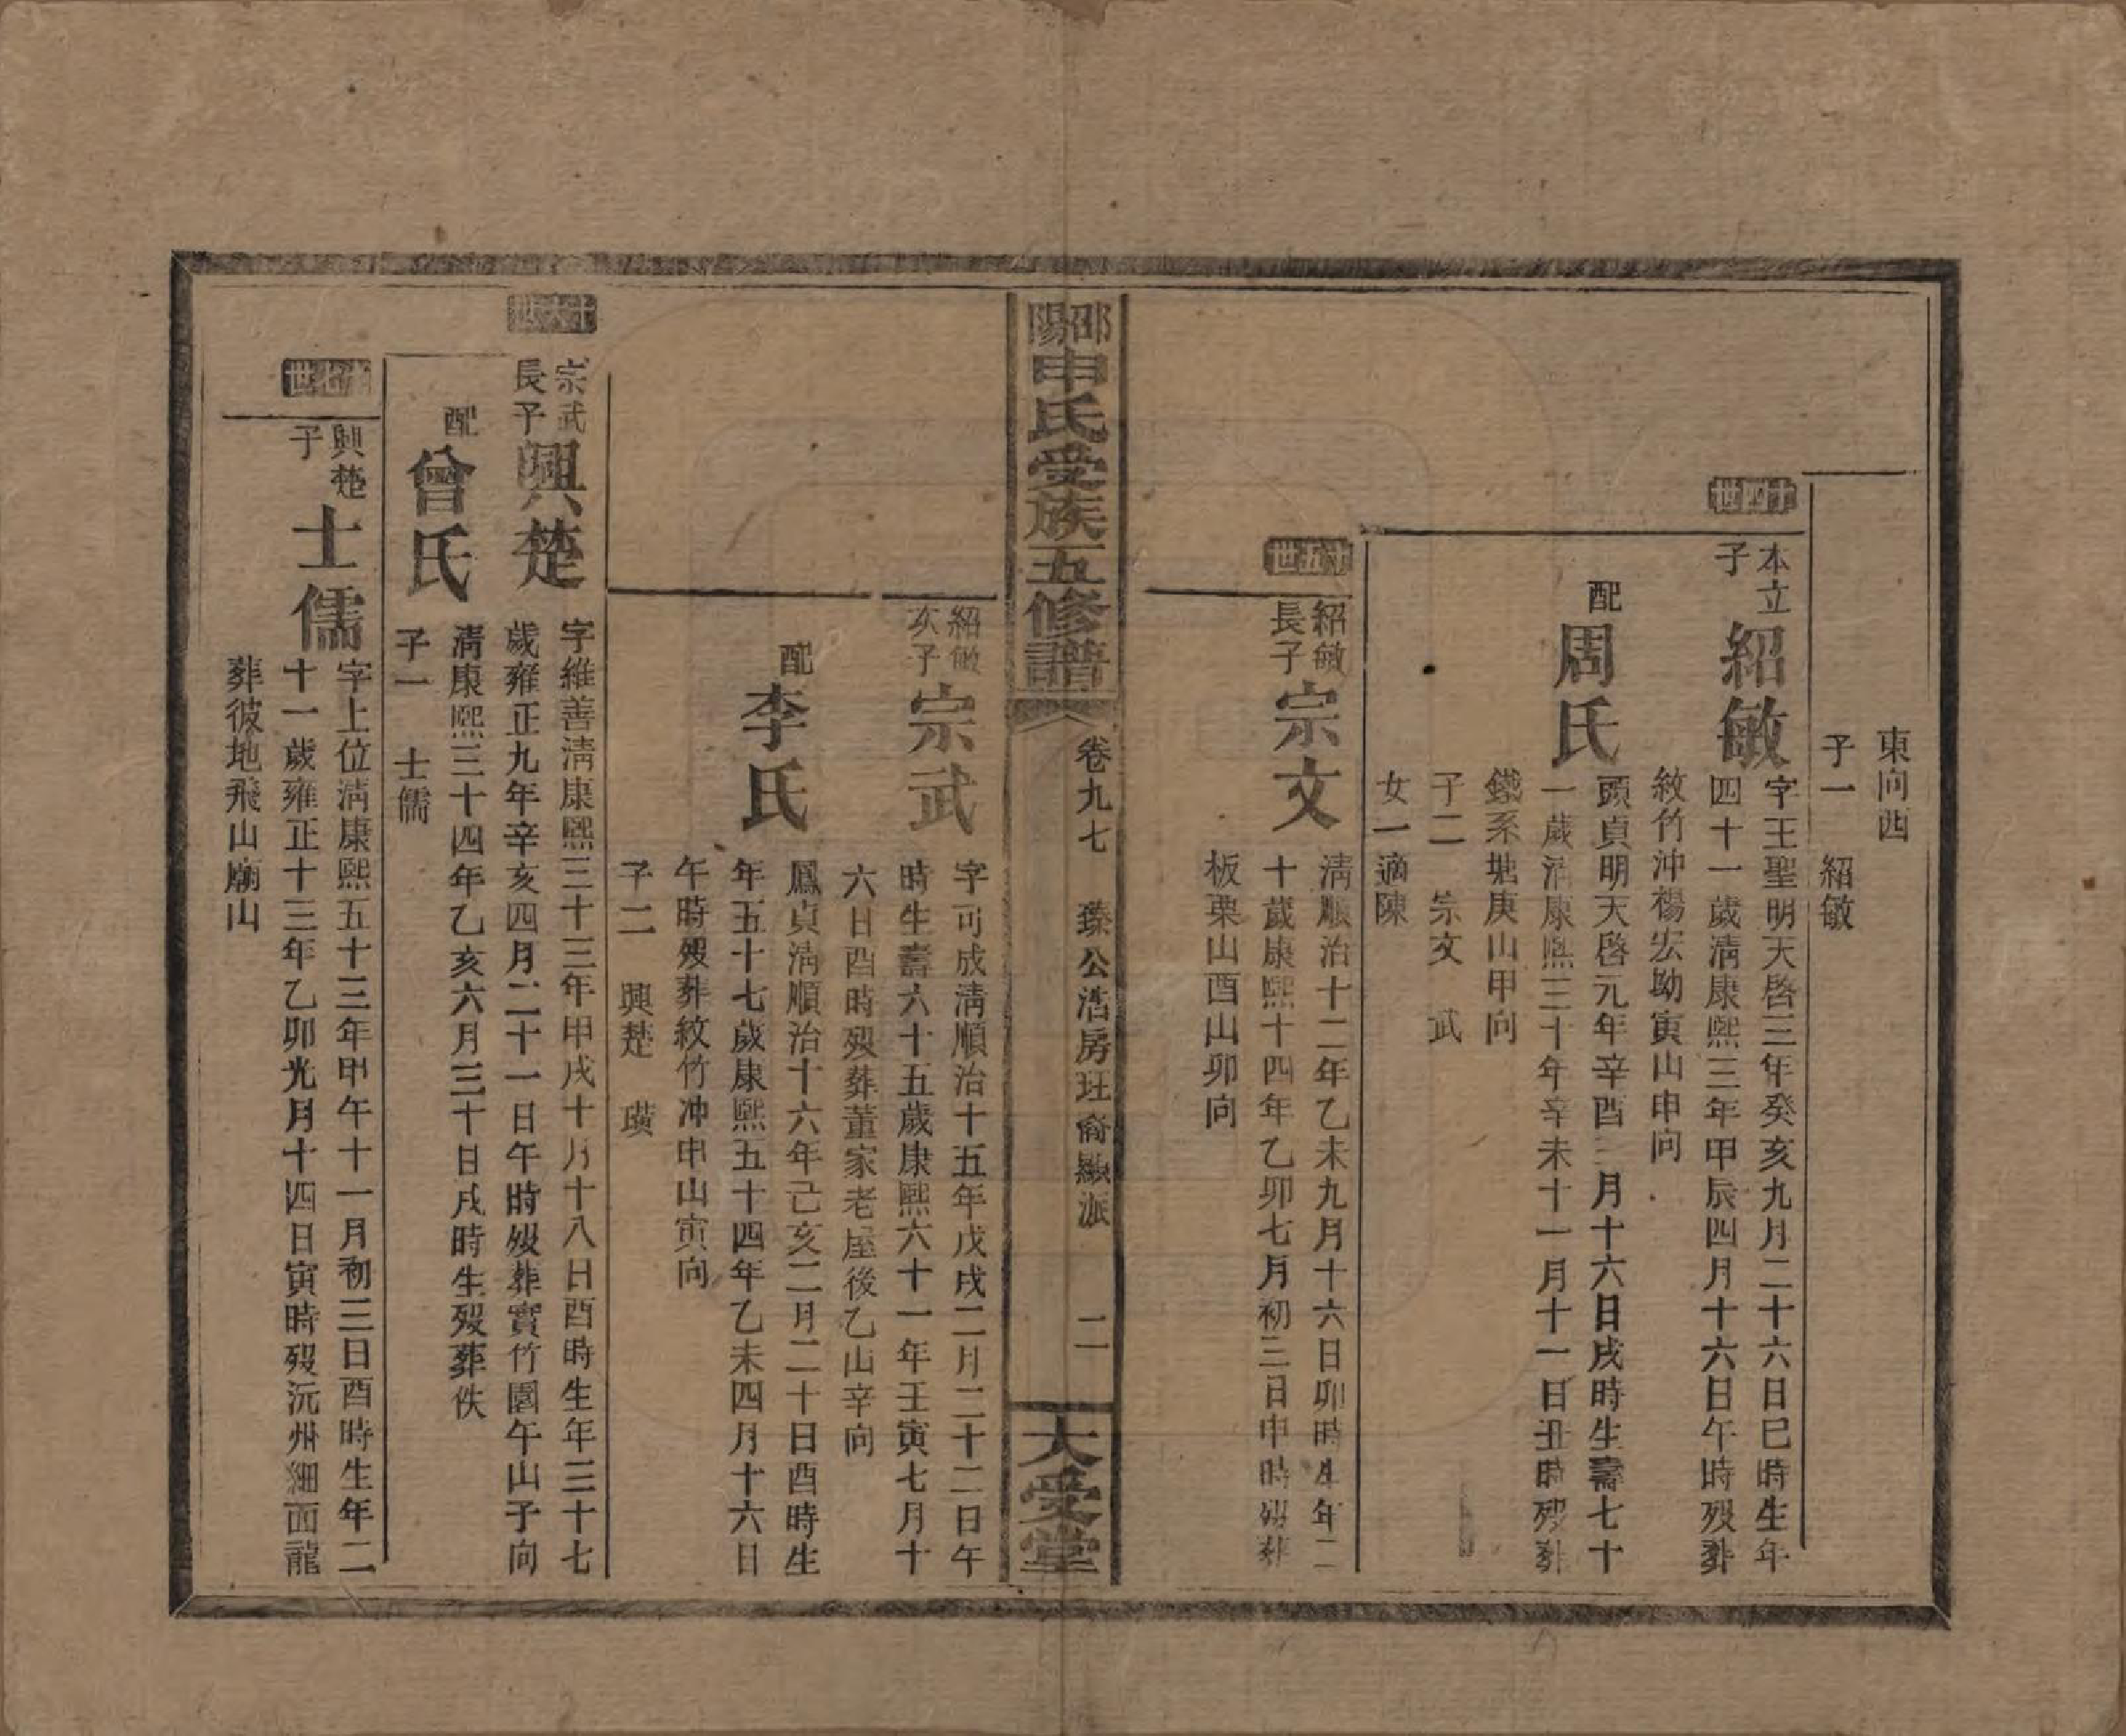 東向西
子一　紹敏
十四世
本立子　紹敏　字王聖明天啓三年癸亥九月二十六日巳時生年
四十一歲淸康熙三年甲辰四月十六日午時歿葬
紋竹沖楊宏坳寅山申向
配　周氏　頭貞明天啓元年辛酉三月十六日戌時生壽七十
一歲淸康熙三十年辛未十一月十一日丑時歿葬
鐵系塘庚山甲向
子二　宗文　武
女一適陳
十五世
紹敏長子　宗文　淸順治十二年乙未九月十六日卯時生年二
十歲康熙十四年乙卯七月初三日申時歿葬
板栗山酉山卯向
邵陽申氏受族五修譜
卷九七　臻公浩房玨裔顯派　二
大受堂
紹敏次子　宗武　字可成淸順治十五年戊戌二月二十二日午
時生壽六十五歲康熙六十一年壬寅七月十
六日酉時歿葬董家老屋後乙山辛向
配　李氏　鳳貞淸順治十六年己亥二月二十日酉時生
年五十七歲康熙五十四年乙未四月十六日
午時歿葬紋竹冲申山寅向
子二　興楚　璜
十六世
宗武長子　興楚　字維善淸康熙三十三年甲戌十月十八日酉時生年三十七
歲雍正九年辛亥四月二十一日午時歿葬實竹園午山子向
配　曾氏　淸康熙三十四年乙亥六月三十日戌時生歿葬佚
子一　士儒
十七世
興楚子　士儒　字上位淸康熙五十三年甲午十一月初三日酉時生年二
十一歲雍正十三年乙卯光月十四日寅時歿沅州細面龍
葬彼地飛山廟山